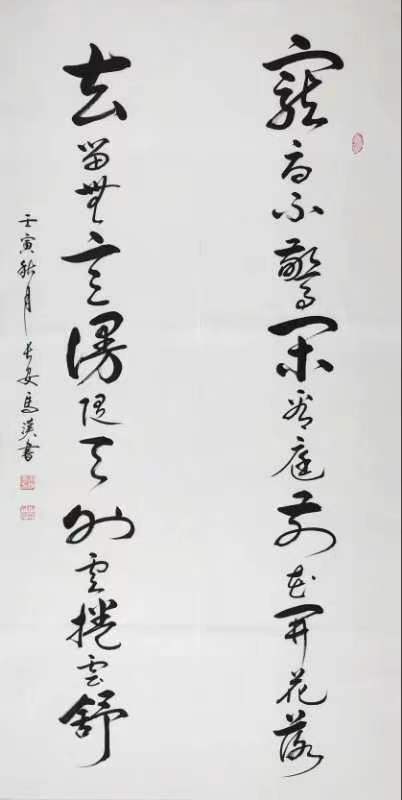 寵辱不驚閑看庭前花開花落
去留無意漫随天外雲捲雲舒
壬寅秋月長安馬漢書